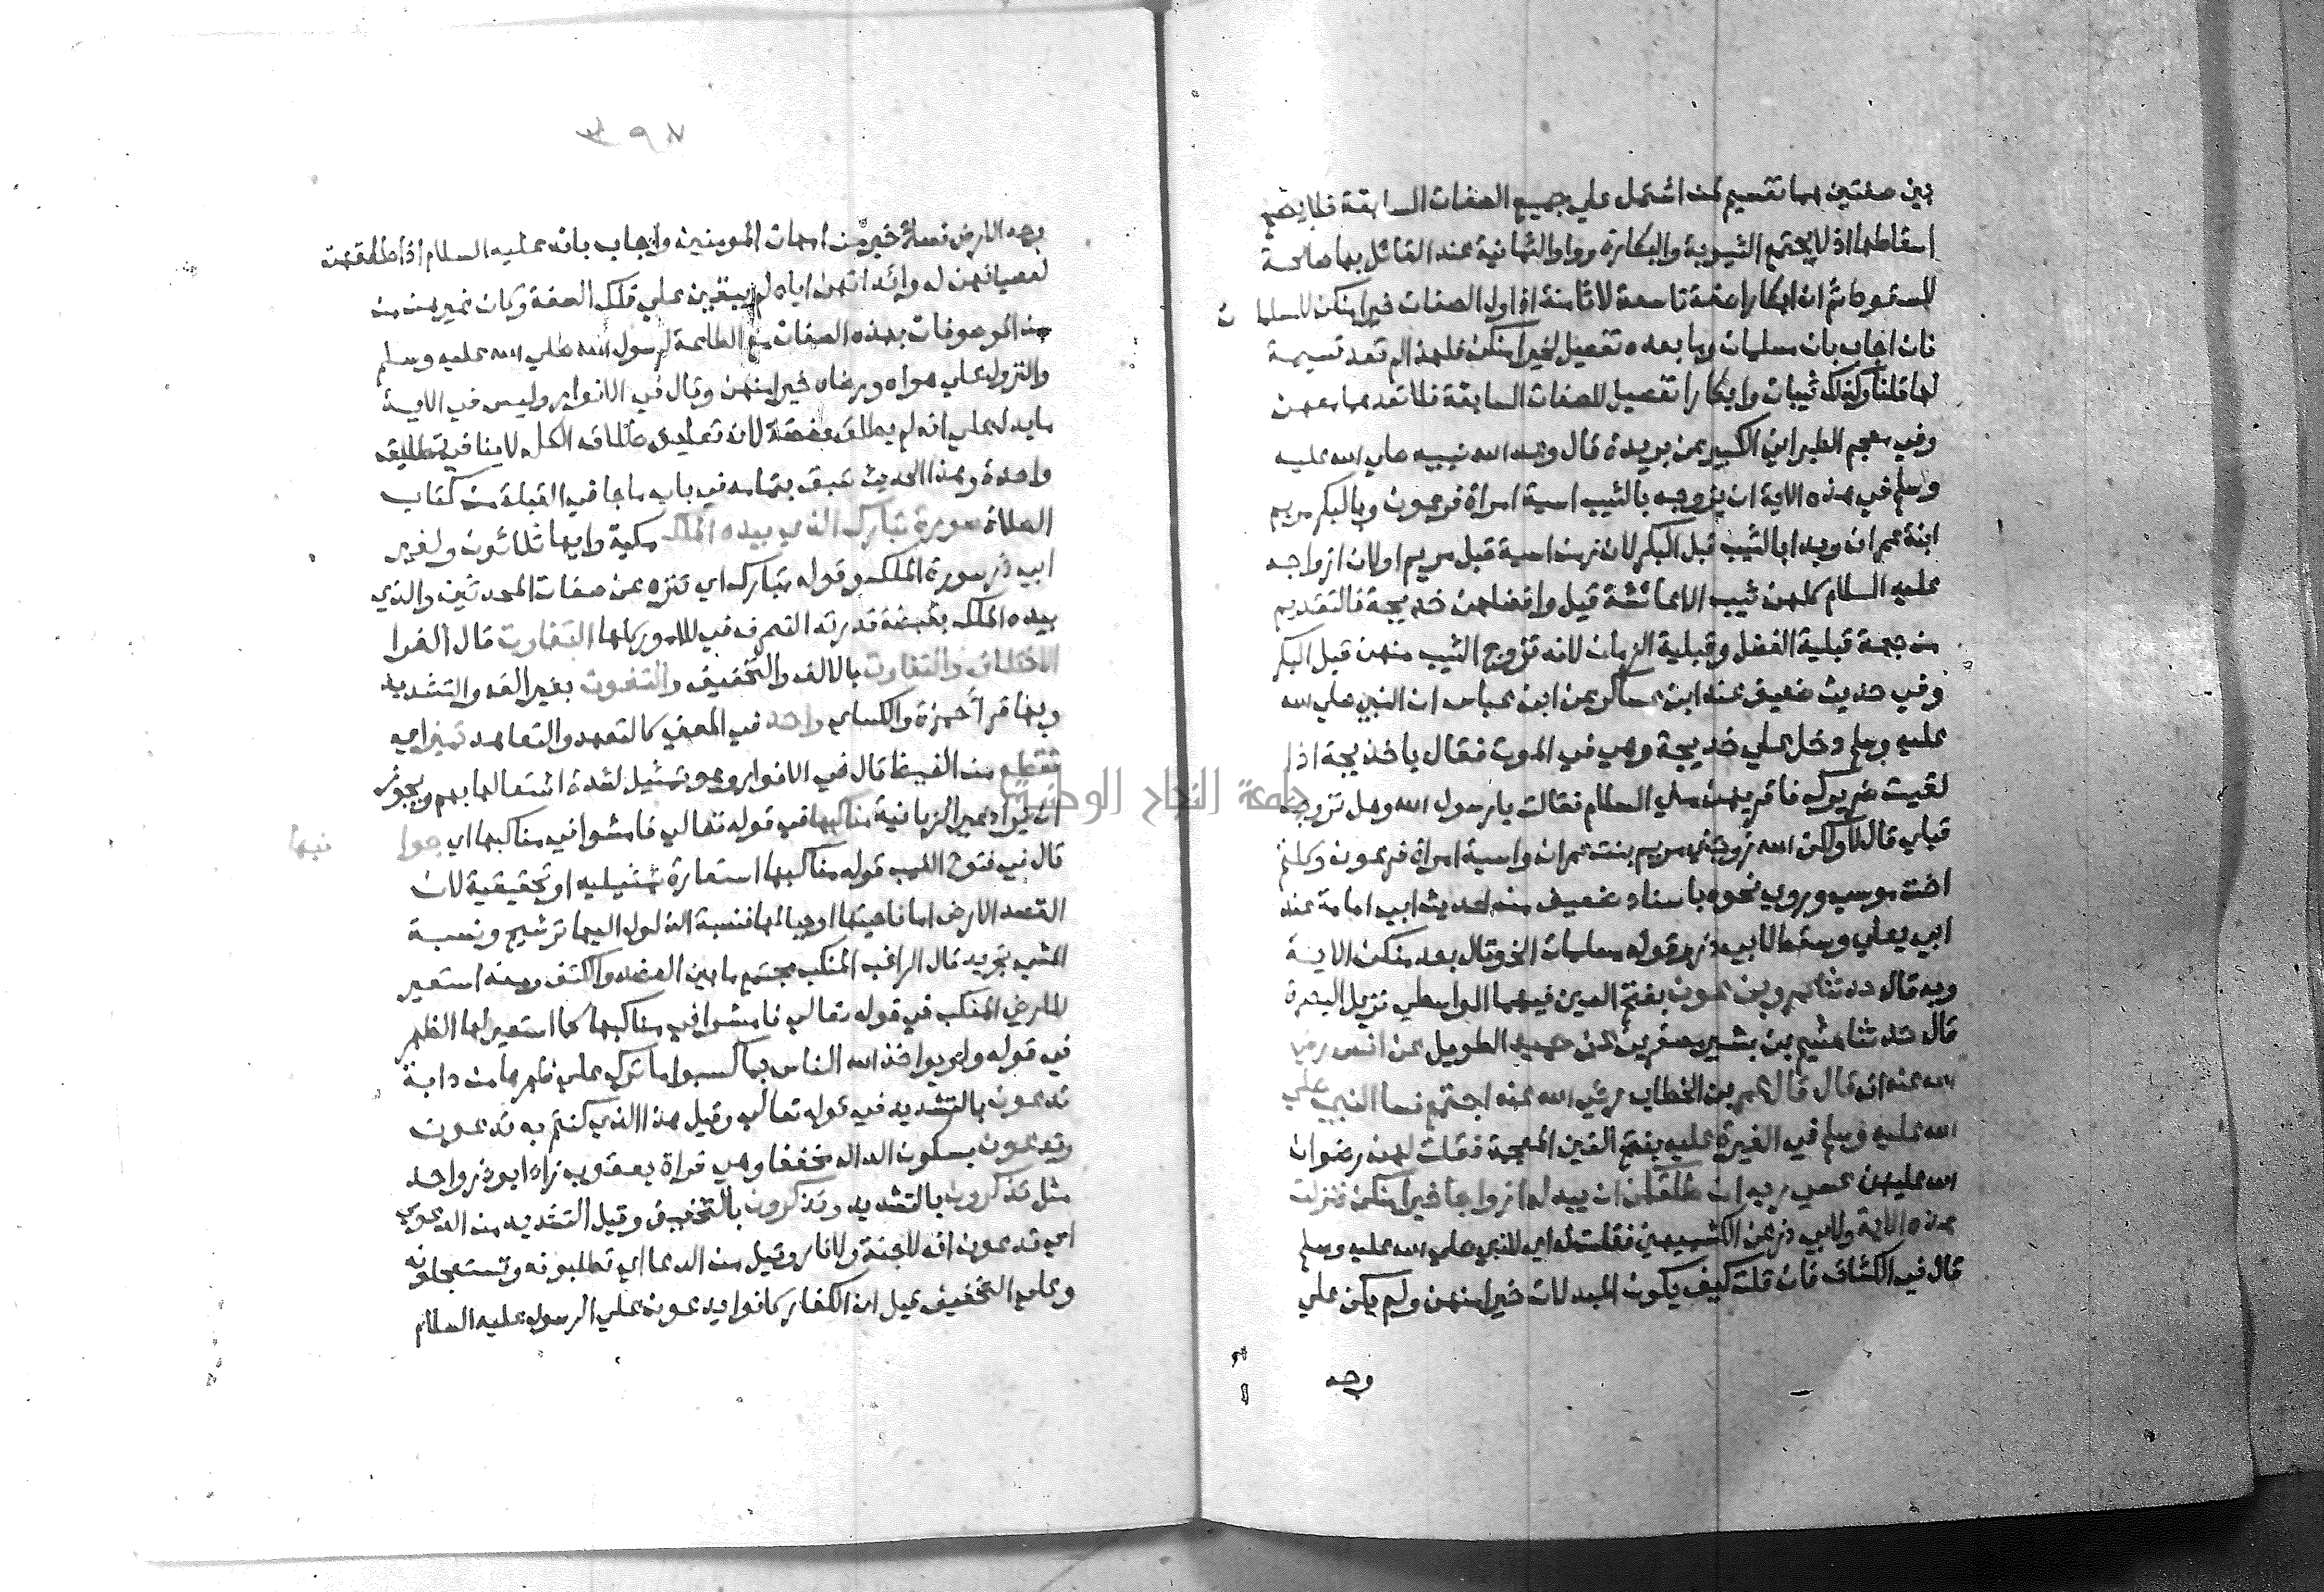 بين صفتين هما تقسيم لمن اشتمل علي جميع الصفات السابقة فلا يصح
اسقاطها اذ لا يجتمع الثيوبة والبكارة وواو الثمانية عند القائل بها صالحة
للسقوط ثم ان ابكارا صفة تاسعة لا ثامنة اذ اول الصفات خيرا منكن لا مسلمات
فان اجاب بان مسلمات وما بعده تفصيل لخيرا منكن فلهذا لم تعد قسيمة
لها قلنا وكذلك ثيبات وابكارا تفصيل للصفات السابقة فلا تعدهما معهن
وفي معجم الطبراني الكبير عن بريدة قال وعد الله نبيه صلي الله عليه
وسلم في هذه الاية ان يزوجه بالثيب اسية امراة فرعون وبالبكر مريم
ابنة عمران وبدا بالثيب قبل البكر لان زمن اسية قبل مريم او لان ازواجه
عليه السلام كلهن ثيب الا عائشة قيل وافضلهن خديجة فالتقديم
من جهة قبلية الفضل وقبلية الزمان لانه تزوج الثيب منهن قبل البكر
وفي حديث ضعيف عند ابن عساكر عن ابن عباس ان النبي صلي الله
عليه وسلم دخل علي خديجة وهي في الموت فقال يا خديجة اذا
لقيت ضرايرك فاقريهن مني السلام فقالت يا رسول الله وهل تزوجت
قبلي قال لا ولكن الله زوجني مريم بنت عمران واسية امراة فرعون وكلثم
اخت موسي وروي نحوه باسناد ضعيف من حديث ابي امامة عند
ابي يعلي وسقط لابي ذر قوله مسلمات الخ وقال بعد منكن الاية
وبه قال حدثنا عمرو بن عون بفتح العين فيهما الواسطي نزيل البصرة
قال حدثنا هشيم بن بشير مصغرين عن حميد الطويل عن انس رضي
الله عنه انه قال قال عمر بن الخطاب رضي الله عنه اجتمع نسا النبي صلي
الله عليه وسلم في الغيرة عليه بفتح الغين المعجمة فقلت لهن رضوان
الله عليهن عسي ربه ان طلقكن ان يبدله ازواجا خيرا منكن فنزلت
هذه الاية ولابي ذر عن الكشميهني فقلت له اي للنبي صلي الله عليه وسلم
قال في الكشاف فان قلت كيف يكون المبدلات خيرا منهن ولم يكن علي
وجه
٣٩٨
وجه الارض نساء خير من امهات المومنين واجاب بانه عليه السلام اذا طلقهن
لعصيانهن له وايذائهن اياه لم يبقين علي تلك الصفة وكان غيرهن من
من الموصوفات بهذه الصفات مع الطاعة لرسول الله صلي الله عليه وسلم
والنزول علي هواه ورضاه خيرا منهن وقال في الانوار وليس في الاية
ما يدل علي انه لم يطلق حفصة لان تعليق طلاق الكل لا ينافي تطليق
واحدة وهذا الحديث سبق بتمامه في باب ما جا في القبلة من كتاب
الصلاة سورة تبارك الذي بيده الملك مكية وايها ثلاثون ولغير
ابي ذر سورة الملك وقوله تبارك اي تنزه عن صفات المحدثين والذي
بيده الملك بقبضة قدرته التصرف في الامور كلها التفاوت قال الفرا
الاختلاف والتفاوت بالالف والتخفيف والتفوت بغير الف والتشديد
وبها قرا حمزة والكساي واحد في المعني كالتعهد والتعاهد تميز اي
تقطع من الغيظ قال في الانوار وهو تمثيل لشدة اشتعالها بهم ويجوز
ان يراد غير الزبانية مناكبها في قوله تعالي فامشوا في مناكبها اي جوا نبها
قال في فتوح الغيب قوله مناكبها استعارة تمثيليه او تحقيقية لان
القصد الارض اما ناحيتها او جبالها فنسبة الذلول اليها ترشيح ونسبة
المشي تجريد قال الراغب المنكب مجتمع ما بين العضد والكتف ومنه استعير
للارض المنكب في قوله تعالي فامشوا في مناكبها كما استعير لها الظهر
في قوله ولو يواخذ الله الناس بما كسبوا ما ترك علي ظهرها من دابة
تدعون بالتشديد في قوله تعالي وقيل هذا الذي كنتم به تدعون
وتدعون بسكون الدال مخففا وهي قراة يعقوب زاد ابو ذر واحد
مثل تذكرون بالتشديد وتذكرون بالتخفيف وقيل التشديد من الدعوي
اي تدعون انه لا جنة ولا نار وقيل من الدعا اي تطلبونه وتستعجلونه
وعلي التخفيف قيل ان الكفار كانوا يدعون علي الرسول عليه السلام
جامعة النجاح الوطنية